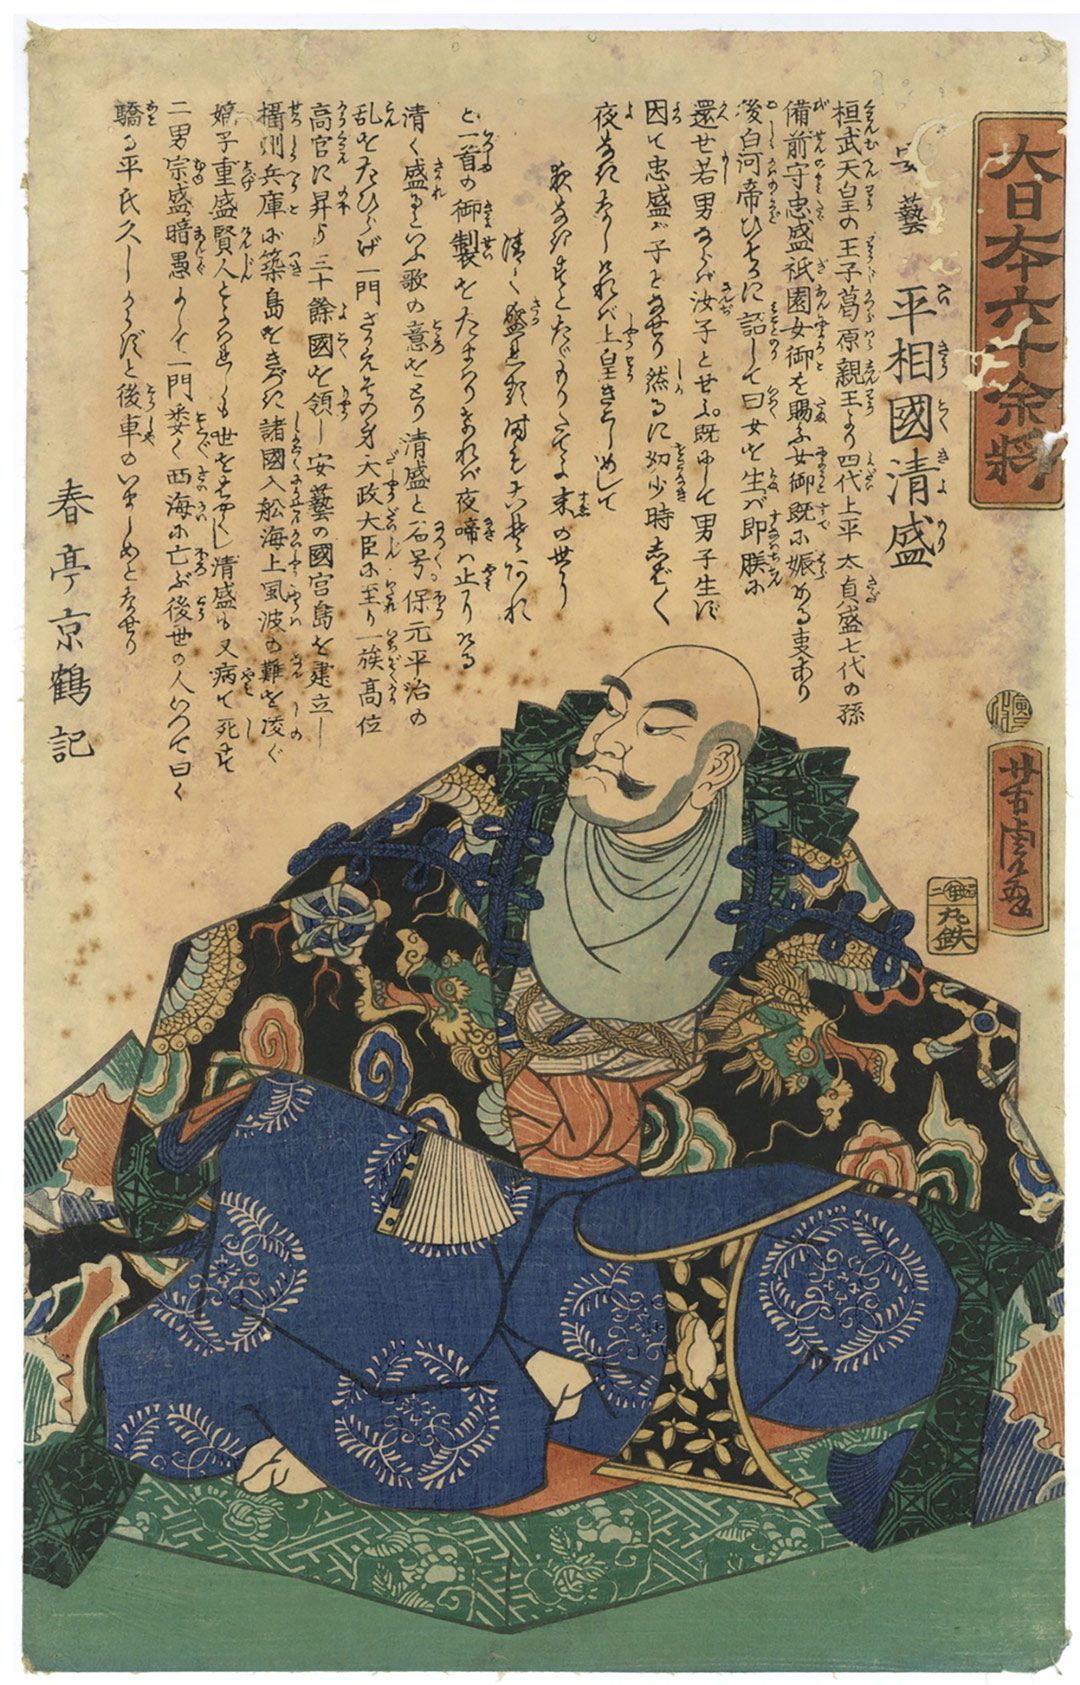 大日本六十余将
藝 平相國清盛
桓武天皇の王子葛原親王より四代上平太貞盛七代の孫
備前守忠盛祇園女御を賜ふ女御既に娠める事あり
後白河帝ひそかに詔して曰女を生バ即朕に
還せ若男ならバ汝子とせよ既にして男子生ず
因て忠盛が子となせり然るに幼少時
夜なきなしければ上皇きこしめして
夜なきすとたゞもりたてよ末の世に
清く盛ふる
と一首の御製をたまはりければ夜啼ハ止りける
清く盛といふ歌の意をとり清盛と名号く保元平治の
乱をたひらげ一門さかえその身大政大臣に至り一族高位
高官に昇り三十餘國を領し安藝の國宮島を建立し
摂州兵庫に築島をきづき諸國入舩海上風波の難を凌ぐ
嫡子重盛賢人 世を 清盛も又病て死す
二男宗盛暗愚 一門悉く西海に亡ぶ後世の人 曰く
驕る平氏久しからずと後車のいましめとなせり
春亭京鶴記
芳虎画
丸鉄